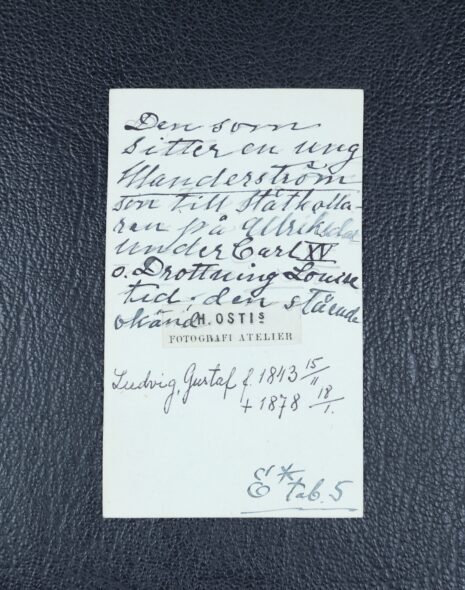 Den som
sitter en ung
Manderström
son till ståthålla-
ren på Ulriksdal
under Carl XV
o. Drottning Louise
tid; den stående
okänd
H. OSTIS
FOTOGRAFI ATELIER
Ludvig, Gustaf f. 1843 15/11
+ 1878 18/1.
E* tab. 5